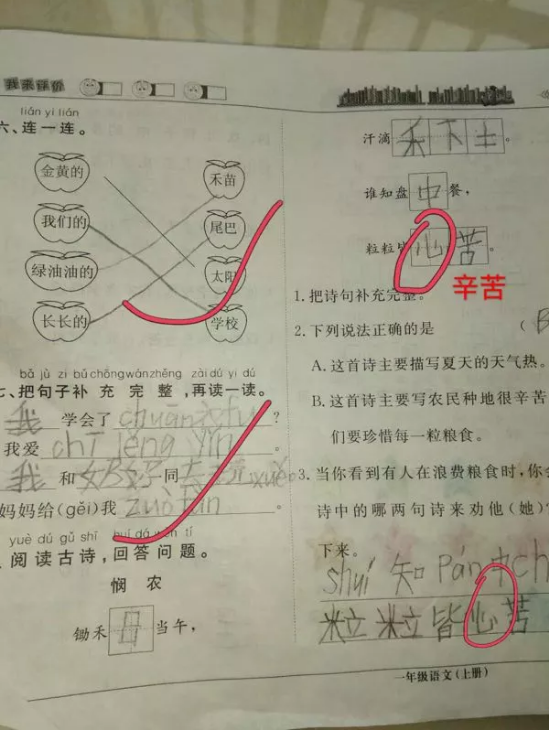 我来评价
lián yi lián
六、连一连。
金黄的
禾苗
我们的
尾巴
绿油油的
太阳
长长的
学校
bǎ jù zi bǔ chōng wán zhěng zài dú yi dú
七、把句子补充完整,再读一读。
我 学会了 chuān衣fu ?
我爱 chī jēng yǐn 。
我 和 好 同 xué
妈妈给(gěi)我 zuò fàn 。
yuè dú gǔ shī huí dá wèn tí
阅读古诗,回答问题。
悯 农
锄禾日当午,
汗滴禾下土。
谁知盘中餐,
粒粒皆心苦。
辛苦
1.把诗句补充完整。
2.下列说法正确的是 (B
A.这首诗主要描写夏天的天气热。
B.这首诗主要写农民种地很辛苦
们要珍惜每一粒粮食。
3.当你看到有人在浪费粮食时,你会
诗中的哪两句诗来劝他(她)?
下来。
shuí 知 Pán 中 c
粒 粒 皆 心 苦
一年级语文(上册)